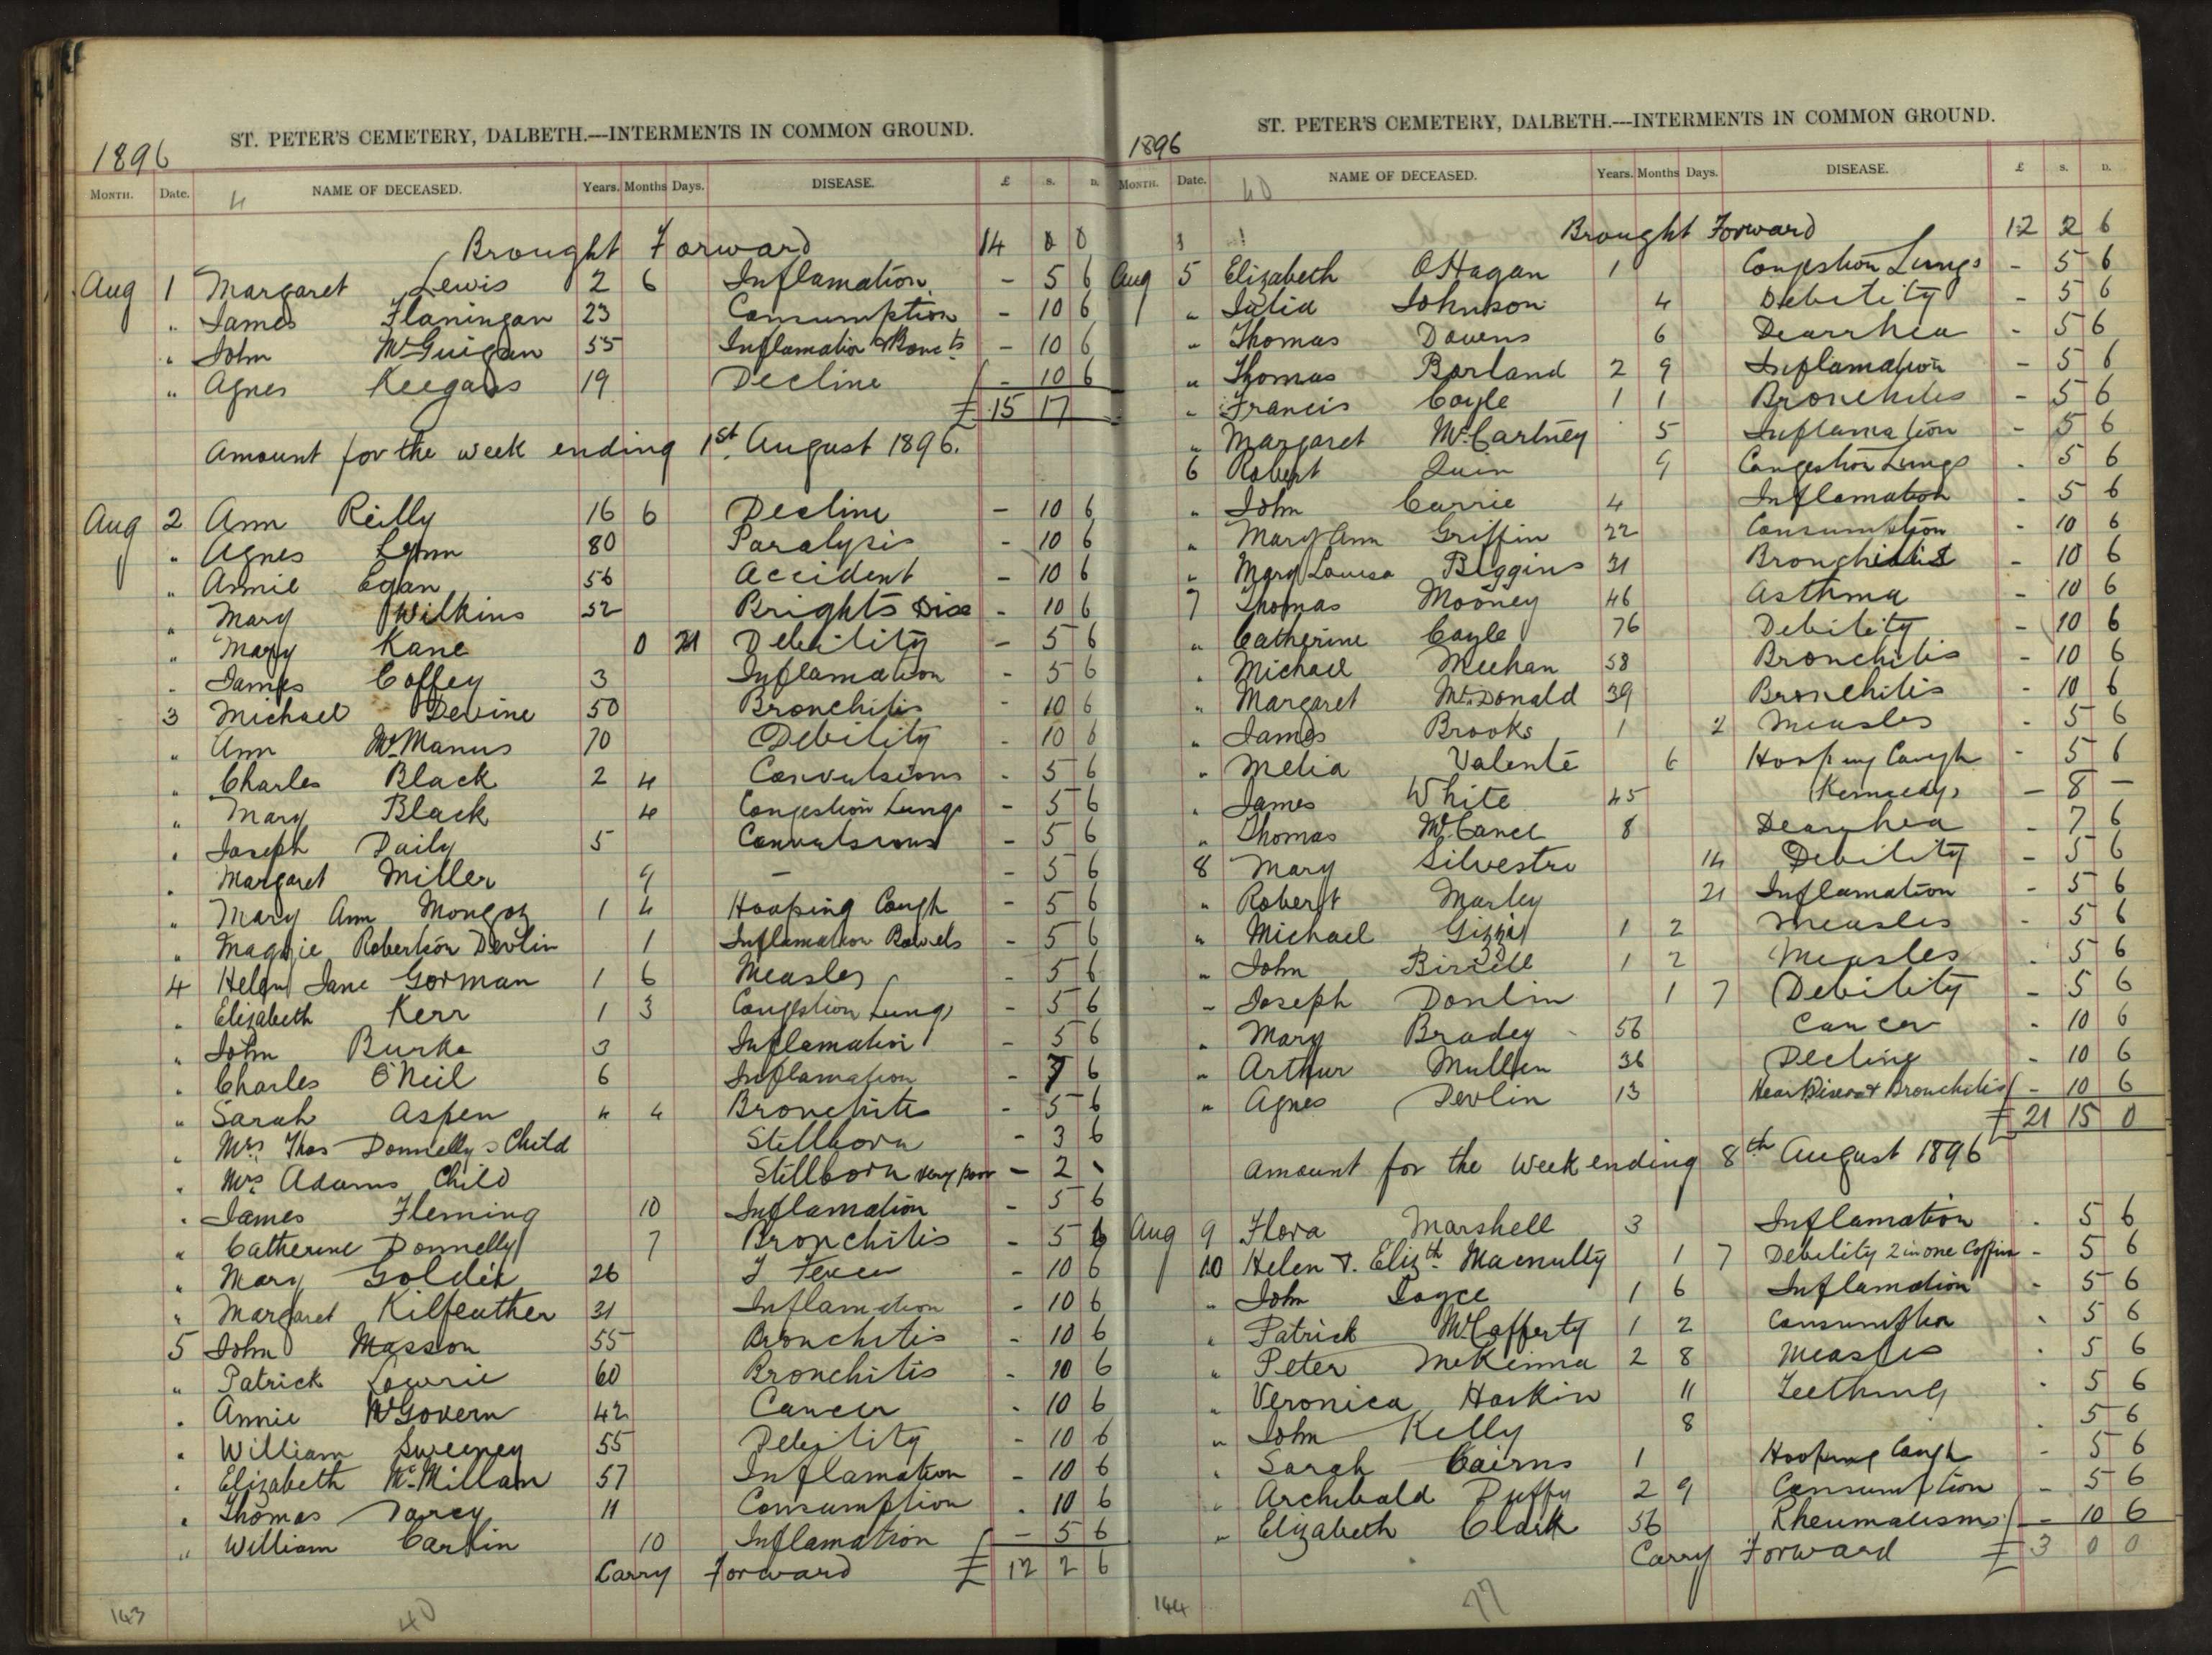 1896
ST. PETER'S CEMETERY, DALBETH.—INTERMENTS IN COMMON GROUND.
MONTH. Date. NAME OF DECEASED. Years. Months Days. DISEASE. £ s. D.
4
Brought Forward 14 0 0
Aug 1 Margaret Lewis 2 6 Inflamation - 5 6
" James Flaningan 23 Consumption - 10 6
" John McGuigan 55 Inflamation - 10 6
" Agnes Keegans 19 Decline - 10 6
£ 15 17 -
Amount for the week ending 1st. August 1896.
Aug 2 Ann Reilly 16 6 Decline - 10 6
" Agnes Lynn 80 Paralysis - 10 6
" Annie Egan 56 Accident - 10 6
" Mary Wilkins 52 Brights Dise - 10 6
" Mary Kane 0 21 Debility - 5 6
" James Coffey 3 Inflamation - 5 6
3 Michael Devine 50 Bronchitis - 10 6
" Ann McManus 70 Debility - 10 6
" Charles Black 2 4 Convulsions - 5 6
" Mary Black 4 Congestion Lungs - 5 6
" Joseph Daily 5 Convulsions - 5 6
" Margaret Miller 9 - - 5 6
" Mary Ann Mongon 1 4 Hooping Cough - 5 6
" Maggie Robertson Devlin 1 Inflamation Bowels - 5 6
4 Helen Jane Gorman 1 6 Measles - 5 6
" Elizabeth Kerr 1 3 Congestion Lungs - 5 6
" John Burke 3 Inflamation - 5 6
" Charles O'Neil 6 Inflamation - 7 6
" Sarah Aspen 4 4 Bronchitis - 5 6
" Mrs Thos Donnelly's Child Stillborn - 3 6
" Mrs Adams Child Stillborn very poor - 2 -
" James Fleming 10 Inflamation - 5 6
" Catherine Donnelly 7 Bronchitis - 5 6
" Mary Goldie 26 T Fever - 10 6
" Margaret Kilfeather 31 Inflamation - 10 6
5 John Masson 55 Bronchitis - 10 6
" Patrick Lowrie 60 Bronchitis - 10 6
" Annie McGovern 42 Cancer - 10 6
" William Sweeney 55 Debility - 10 6
" Elizabeth McMillan 57 Inflamation - 10 6
" Thomas Darcy 11 Consumption - 10 6
" William Carlin 10 Inflamation - 5 6
Carry Forward £ 12 2 6
143
40
1896
ST. PETER'S CEMETERY, DALBETH.—INTERMENTS IN COMMON GROUND.
MONTH. Date. NAME OF DECEASED. Years. Months Days. DISEASE. £ s. D.
40
Brought Forward 12 2 6
Aug 5 Elizabeth OHagan 1 Congestion Lungs - 5 6
" Julia Johnson 4 Debility - 5 6
" Thomas Dowens 6 Dearrhea - 5 6
" Thomas Borland 2 9 Inflamation - 5 6
" Francis Coyle 1 1 Bronchites - 5 6
" Margaret McCartney 5 Inflamation - 5 6
6 Robert Quin 9 Congestion Lungs - 5 6
" John Currie 4 Inflamation - 5 6
" Mary Ann Griffin 22 Consumption - 10 6
" Mary Louisa Biggins 31 Bronchitis - 10 6
7 Thomas Mooney 46 Asthma - 10 6
" Catherine Coyle 76 Debility - 10 6
" Michael Meehan 58 Bronchitis - 10 6
" Margaret McDonald 39 Bronchitis - 10 6
" James Brooks 1 2 Measles - 5 6
" Melia Valente 6 Hooping Cough - 5 6
" James White 45 (Kennedy) - 8 -
" Thomas McCance 8 Dearrhea - 7 6
8 Mary Silvestro 14 Debility - 5 6
" Robert Marley 21 Inflamation - 5 6
" Michael Gizzi 1 2 Measles - 5 6
" John Birrell 1 2 Measles - 5 6
" Joseph Donlin 1 7 Debility - 5 6
" Mary Bradey 56 Cancer - 10 6
" Arthur Mullen 36 Decline - 10 6
" Agnes Devlin 13 Bronchitis - 10 6
£ 21 15 0
Amount for the Week ending 8th August 1896
Aug 9 Flora Marshell 3 Inflamation - 5 6
10 Helen & Elizth. Macnulty 1 7 Debility 2 in one Coffin - 5 6
" John Joyce 1 6 Inflamation - 5 6
" Patrick McCafferty 1 2 Consumption - 5 6
" Peter McKenna 2 8 Measles - 5 6
" Veronica Harkin 11 Teething - 5 6
" John Kelly 8 - 5 6
" Sarah Cairns 1 Hooping Cough - 5 6
" Archibald Duffy 2 9 Consumption - 5 6
" Elizabeth Clark 56 Rheumatisms - 10 6
Carry Forward £ 3 0 0
144
77